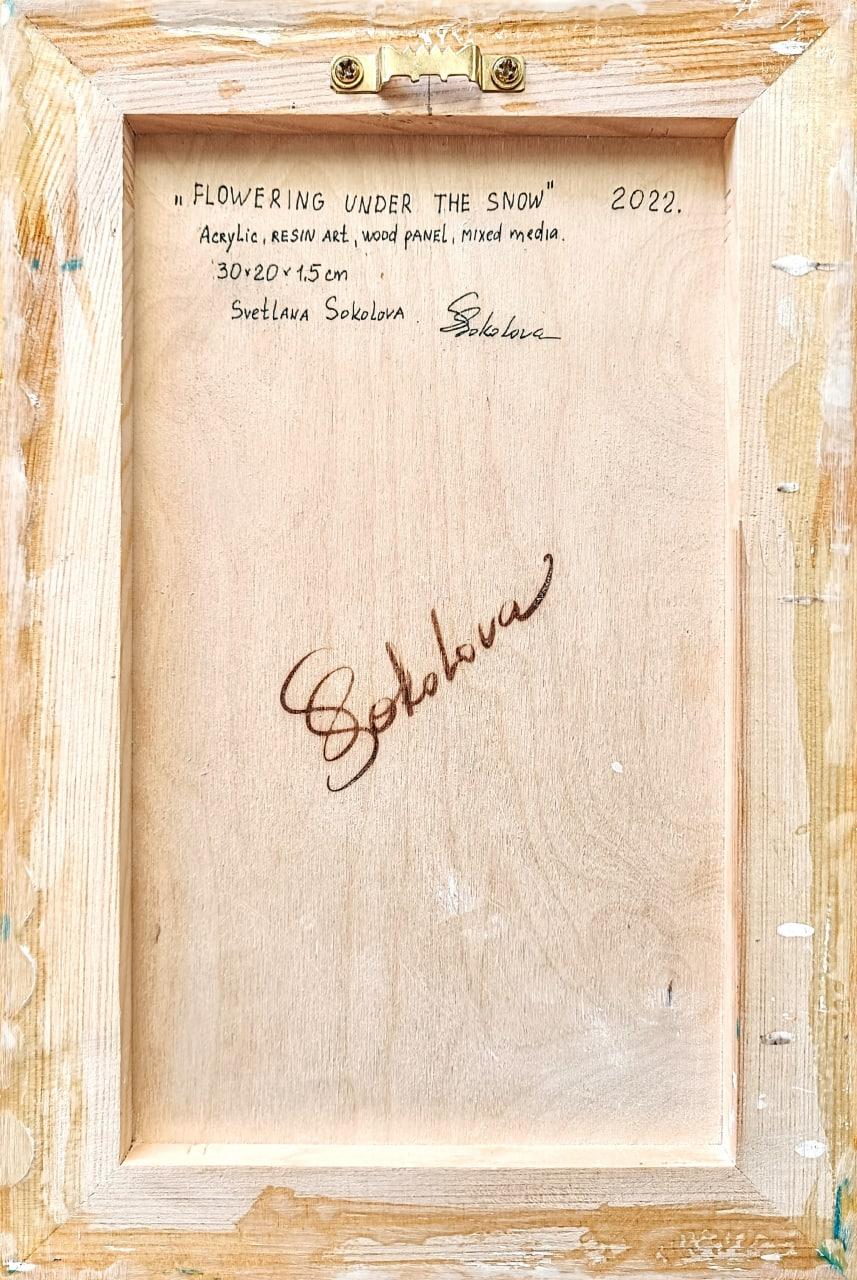 „FLOWERING UNDER THE SNOW" 2022.
Acrylic, RESIN ART, WOOD PANEL, MIXED media.
30×20×1.5 cm
SvetLANA SokoLOVA SSokolova
SSokolova